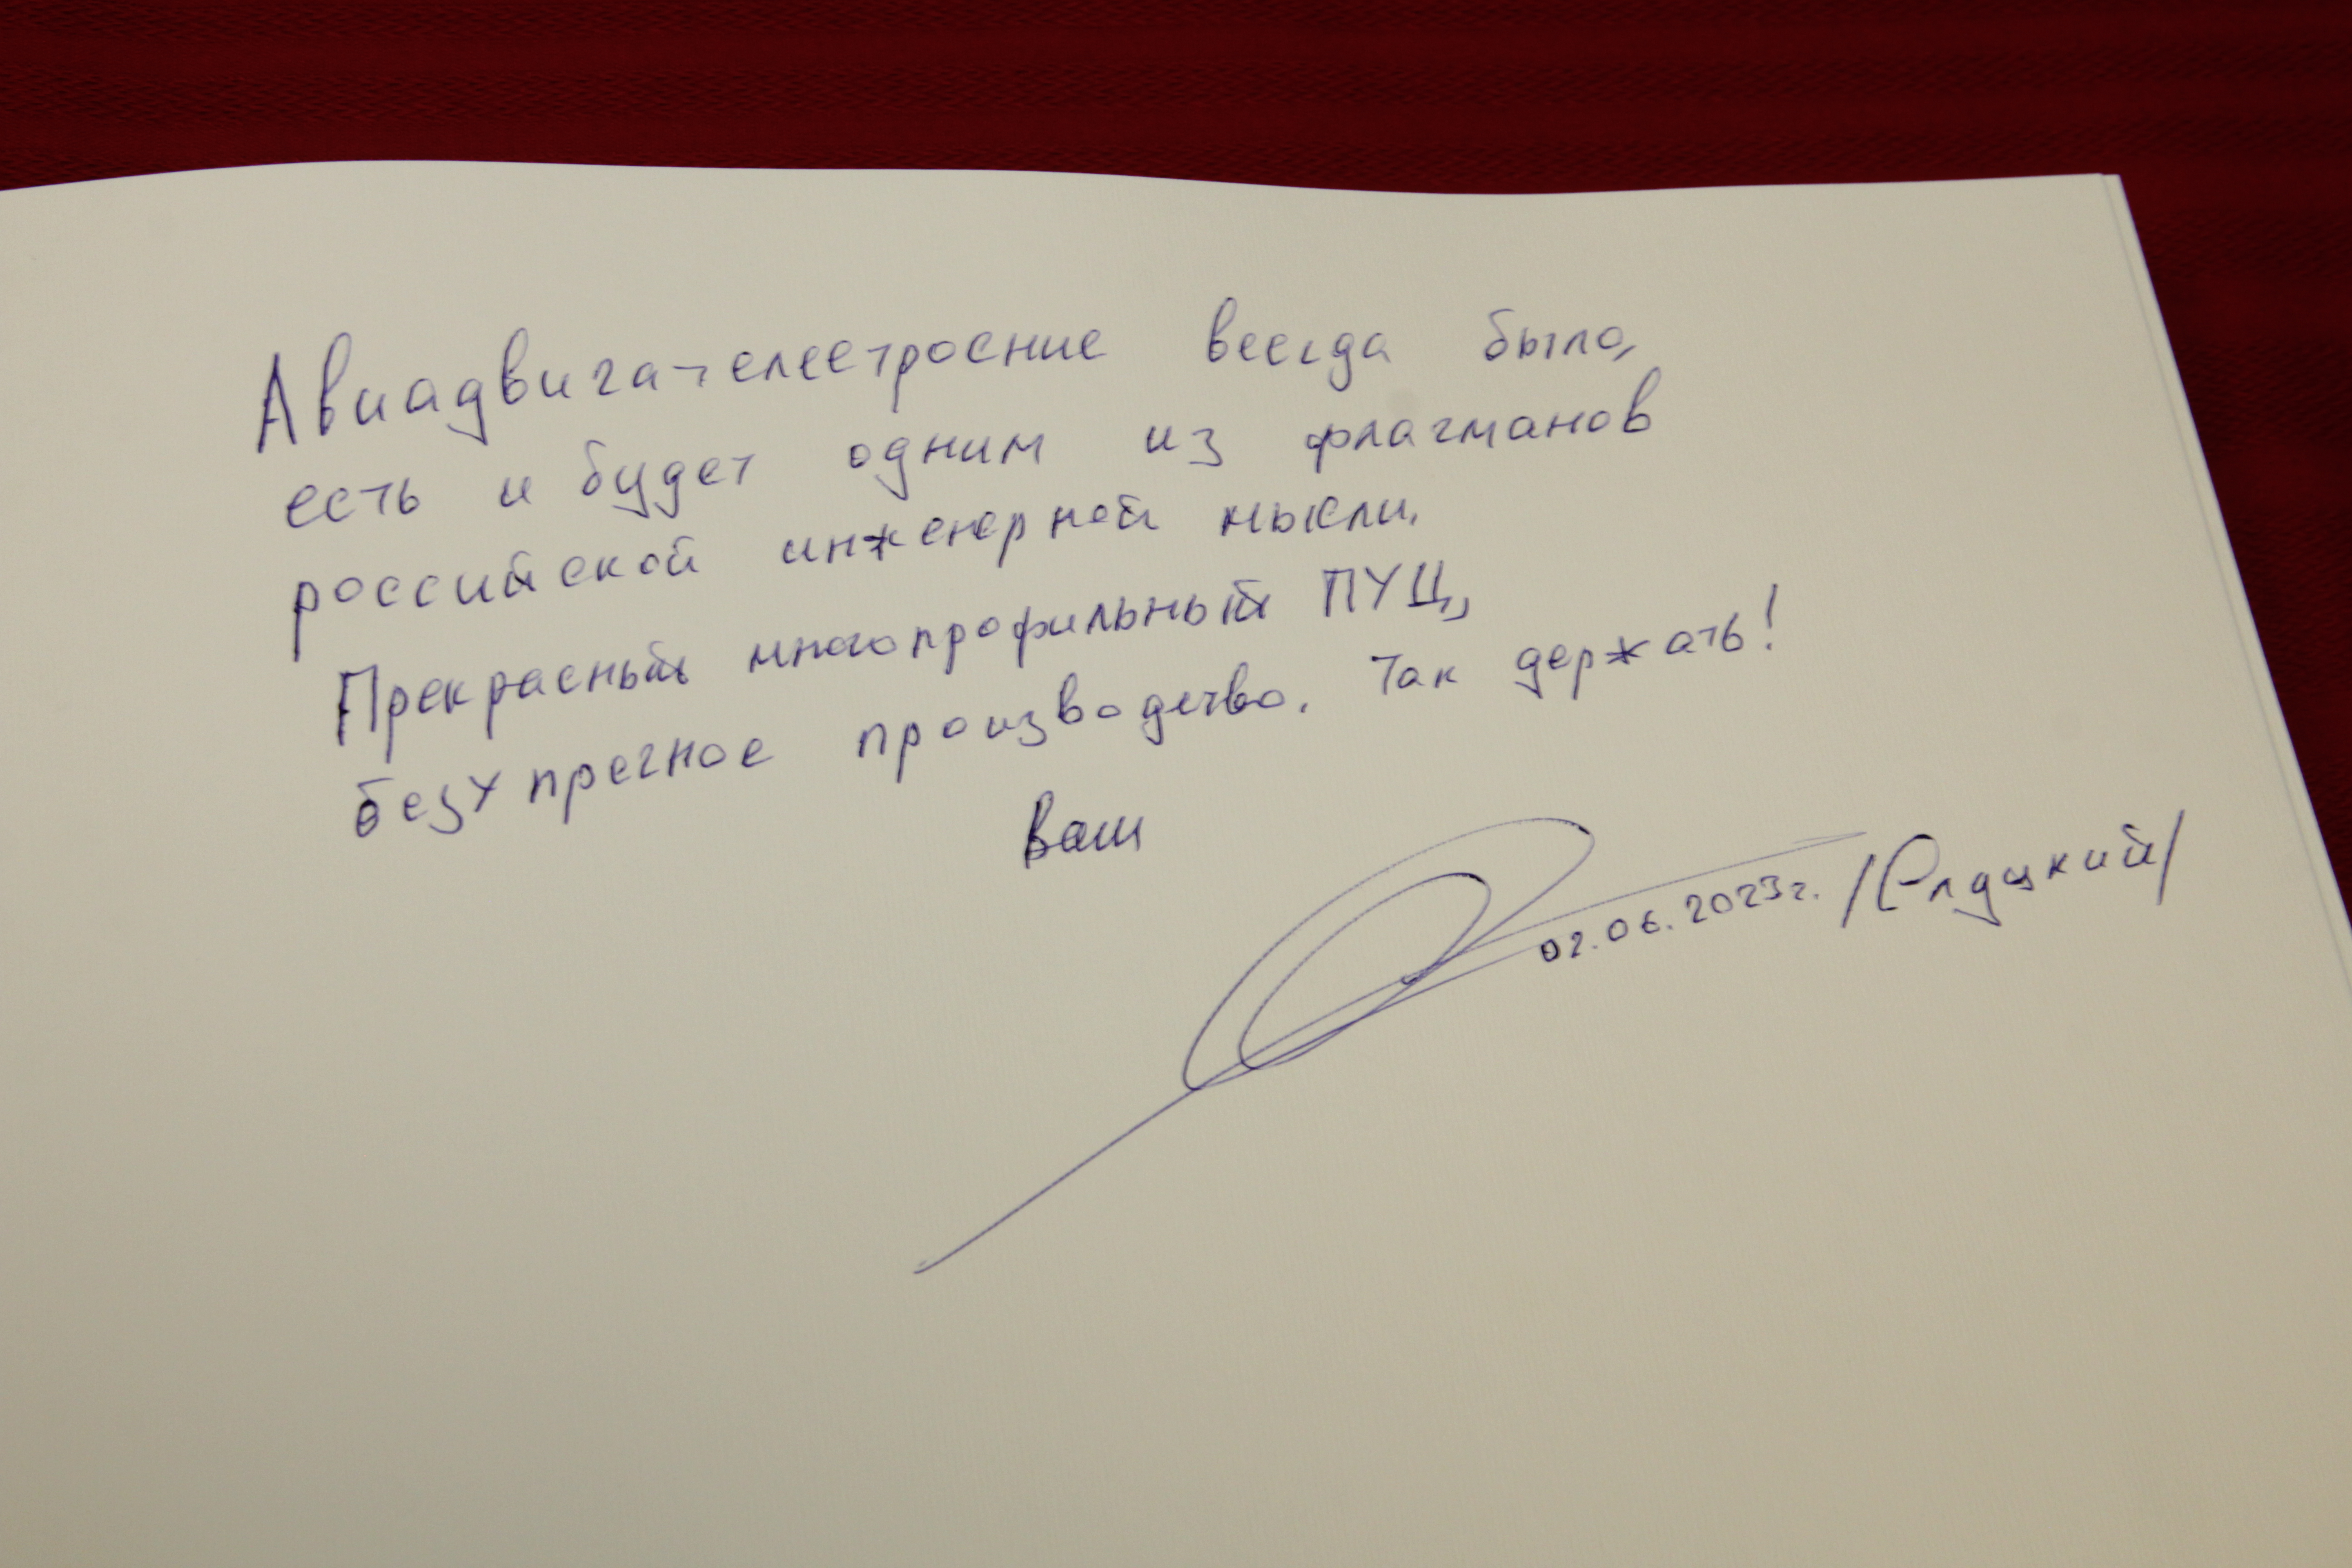 Авиадвигателестроение всегда было,
есть и будет одним из флагманов
российской инженерной мысли.
Прекрасный многопрофильный ПУЦ,
безупречное производство. Так держать!
Ваш
02.06.2023г. /Слуцкий/